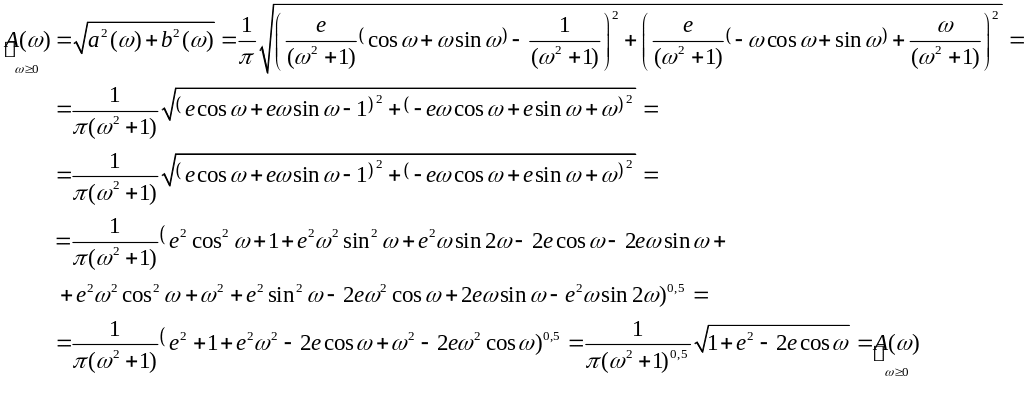 A(ω) = √(a²(ω) + b²(ω)) = 1/π √((e/(ω² + 1) (cos ω + ω sin ω) − 1/(ω² + 1))² + (e/(ω² + 1) (− ω cos ω + sin ω) + ω/(ω² + 1))²) =
ω≥0
= 1/(π(ω² + 1)) √((e cos ω + eω sin ω − 1)² + (− eω cos ω + e sin ω + ω)²) =
= 1/(π(ω² + 1)) √((e cos ω + eω sin ω − 1)² + (− eω cos ω + e sin ω + ω)²) =
= 1/(π(ω² + 1)) (e² cos² ω + 1 + e²ω² sin² ω + e²ω sin 2ω − 2e cos ω − 2eω sin ω +
+ e²ω² cos² ω + ω² + e² sin² ω − 2eω² cos ω + 2eω sin ω − e²ω sin 2ω)^0,5 =
= 1/(π(ω² + 1)) (e² + 1 + e²ω² − 2e cos ω + ω² − 2eω² cos ω)^0,5 = 1/(π(ω² + 1)^0,5) √(1 + e² − 2e cos ω) = A(ω)
ω≥0